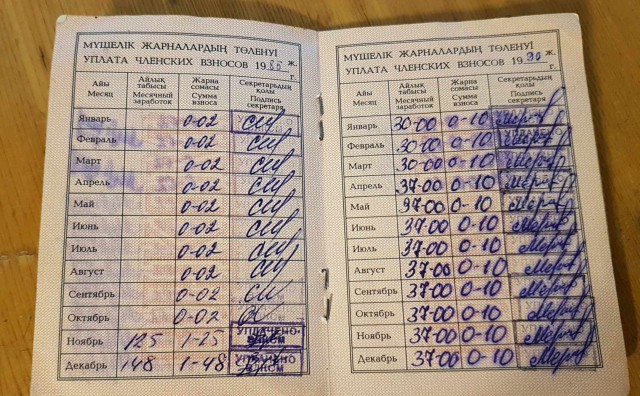 МҮШЕЛІК ЖАРНАЛАРДЫҢ ТӨЛЕНУІ
УПЛАТА ЧЛЕНСКИХ ВЗНОСОВ 1986 ж.
г.
Айы Месяц Айлық табысы Месячный заработок Жарна сомасы Сумма взноса Секретарьдың қолы Подпись секретаря
Январь 0-02
Февраль 0-02
Март 0-02
Апрель 0-02
Май 0-02
Июнь 0-02
Июль 0-02
Август 0-02
Сентябрь 0-02
Октябрь 0-02
Ноябрь 125 1-25 УПЛАЧЕНО ВЛКСМ
Декабрь 148 1-48 УПЛАЧЕНО ВЛКСМ
МҮШЕЛІК ЖАРНАЛАРДЫҢ ТӨЛЕНУІ
УПЛАТА ЧЛЕНСКИХ ВЗНОСОВ 1990 ж.
г.
Айы Месяц Айлық табысы Месячный заработок Жарна сомасы Сумма взноса Секретарьдың қолы Подпись секретаря
Январь 30-00 0-10
Февраль 30-00 0-10
Март 30-00 0-10
Апрель 37-00 0-10
Май 37-00 0-10
Июнь 37-00 0-10
Июль 37-00 0-10
Август 37-00 0-10
Сентябрь 37-00 0-10
Октябрь 37-00 0-10
Ноябрь 37-00 0-10
Декабрь 37-00 0-10